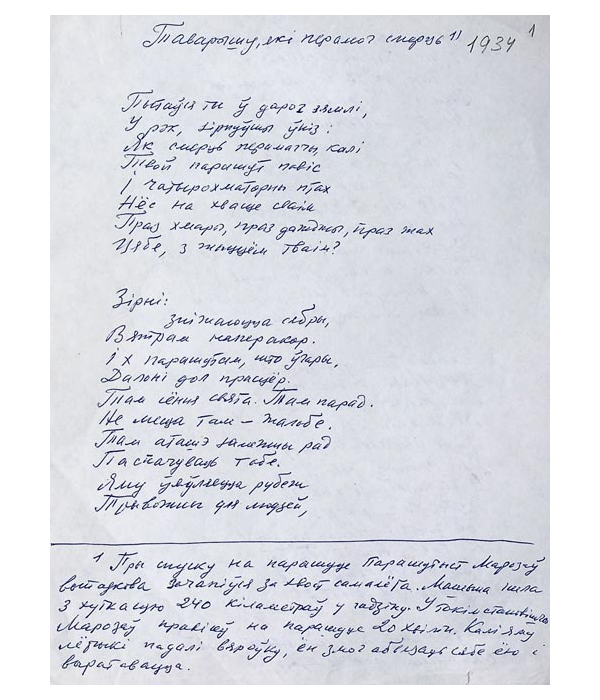 Таварышу, які перамог смерць ¹⁾ 1934
1
Пытаўся ты ў дарог зямлі,
У рэк, зірнуўшы ўніз:
Як смерць перамагчы, калі
Твой парашут павіс
І чатырохматорны птах
Нёс на хвасце сваім
Праз хмары, праз дажджы, праз жах
Цябе, з жыццём тваім?
Зірні:
зніжаюцца сябры,
Вятрам наперакор.
Іх парашутам, што ўгары,
Далоні дол прасцёр.
Там сёння свята. Там парад.
Не месца там – жальбе.
Там аташэ замежны рад
Паспачуваць табе.
Яму ўяўляецца рубеж
Трывожны для людзей,
1 Пры спуску на парашуце парашутыст Марозаў
выпадкова зачапіўся за хвост самалёта. Машына ішла
з хуткасцю 240 кіламетраў у гадзіну. У такім становішчы
Марозаў правісеў на парашуце 20 хвілін. Калі яму
лётчыкі падалі вяроўку, ён змог абвязаць сябе ёю і
выратавацца.